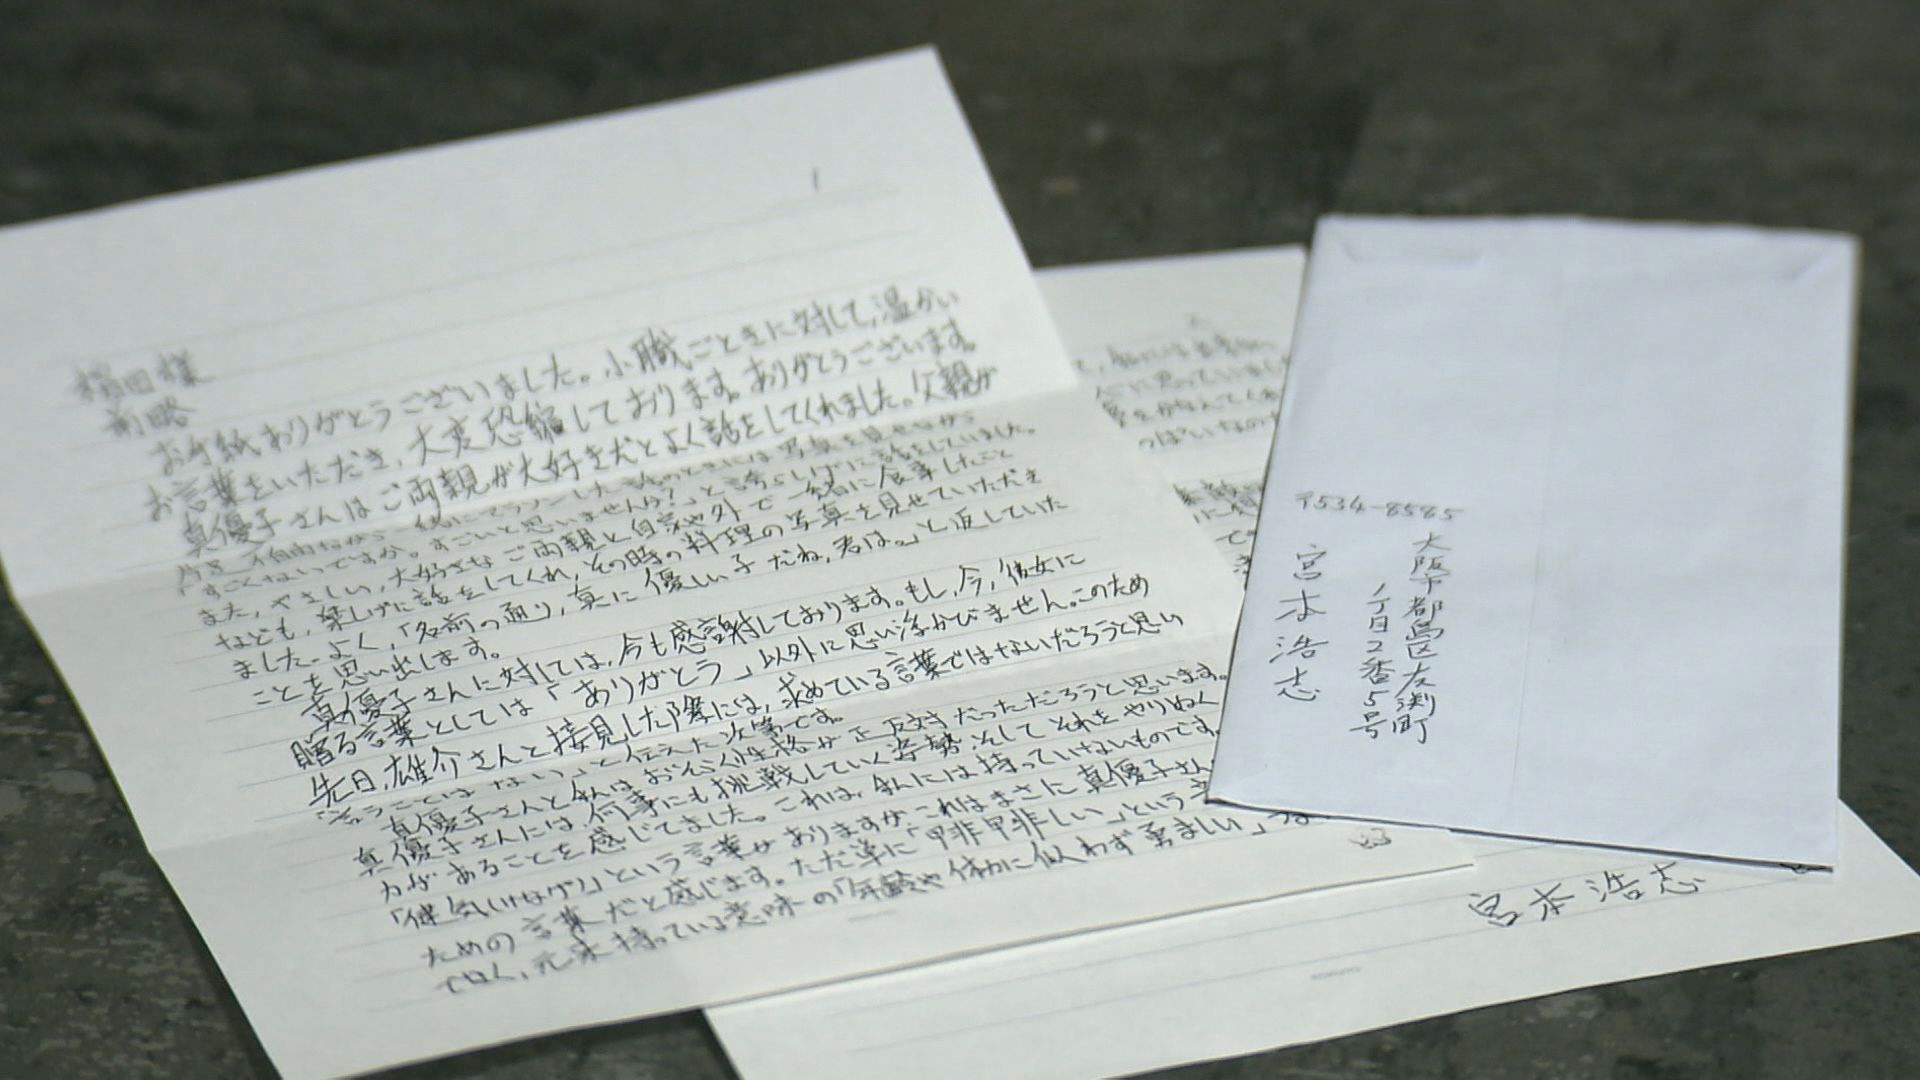 1
稲田様
前略
お手紙ありがとうございました。小職ごときに対して、温かい
お言葉をいただき、大変恐縮しております。ありがとうございます。
真優子さんはご両親が大好きだとよく話をしてくれました。父親が
一緒にマラソンした話のときには写真を見せながら
「すごくないですか。すごいと思いませんか?」と誇らしげに話をしていました。
また、やさしい、大好きなご両親と自宅や外で一緒に食事したこと
なども、楽しげに話をしてくれ、その時の料理の写真を見せていただき
ました。よく、「名前の通り、真に優しい子だね、君は。」と返していた
ことを思い出します。
真優子さんに対しては、今も感謝しております。もし、今、彼女に
贈る言葉としては「ありがとう」以外に思い浮かびません。このため
先日、雄介さんと接見した際には、求めている言葉ではないだろうと思い
「言うことはない。」と伝えた次第です。
真優子さんと私はおそらく性格が正反対だっただろうと思います。
真優子さんには、何事にも挑戦していく姿勢、そしてそれをやりぬく
力があることを感じてました。これは、私には持っていないものです。
「健気(けなげ)」という言葉がありますが、これはまさに真優子さん
ための言葉だと感じます。ただ単に「甲斐甲斐しい」という
でなく、元来持っている意味の「年齢や体力に似わず勇ましい」
〒534-8585
大阪市都島区友渕町
1丁目2番5号
宮本浩志
宮本浩志